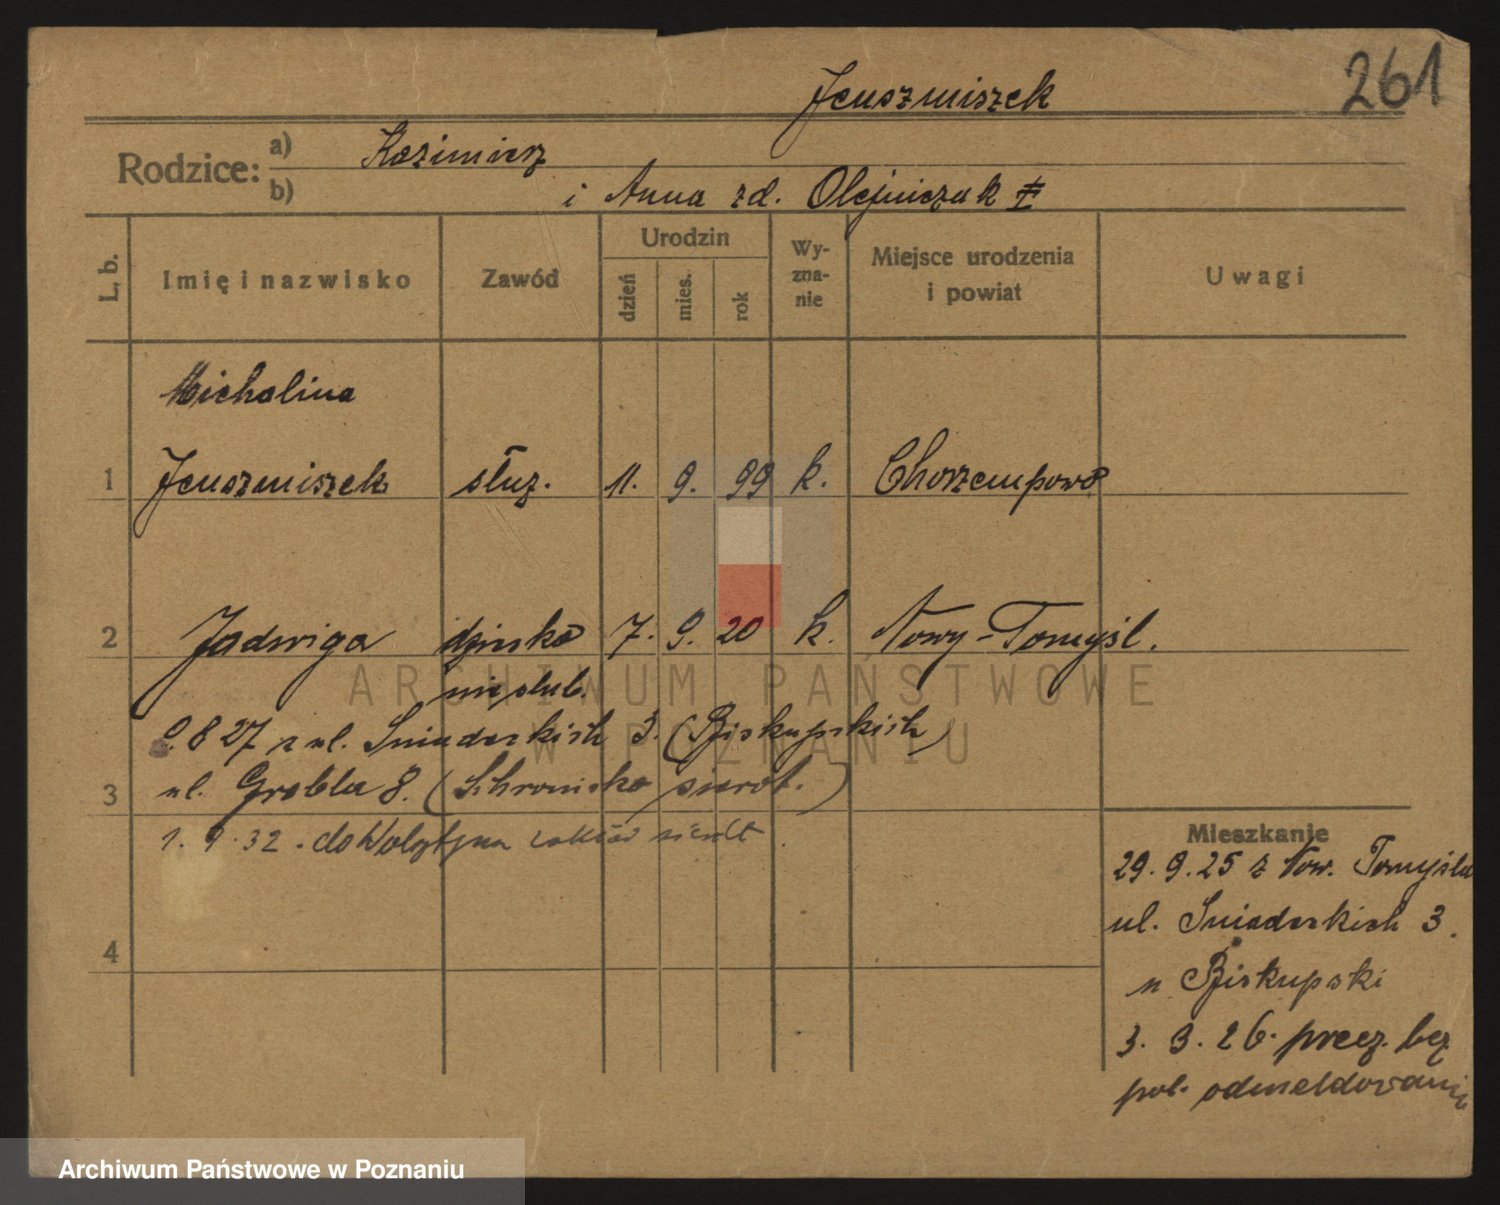 261
Jenszmiszek
Rodzice: a) Kazimierz
b) i Anna zd. Olejniczak
L. b.
Imię i nazwisko
Zawód
Urodzin
dzień
mies.
rok
Wy-
zna-
nie
Miejsce urodzenia
i powiat
Uwagi
Michalina
1 Jenszmiszek służ. 11. 9. 99 k. Chorzempowo
2 Jadwiga 7. 9. 20 k. Nowy-Tomyśl.
nieślub.
827 z ul. Śniadeckich 3. (Biskupskich)
3 ul. Grobla 8. (Schronisko sierot.)
1. 9. 32. do Wolsztyna zakład sierót
4
Mieszkanie
29. 9. 25 z Now. Tomyśla
ul. Śniadeckich 3.
u Biskupski
3. 3. 26. precz. bez
pol. odmeldowania
ARCHIWUM PAŃSTWOWE
W POZNANIU
Archiwum Państwowe w Poznaniu